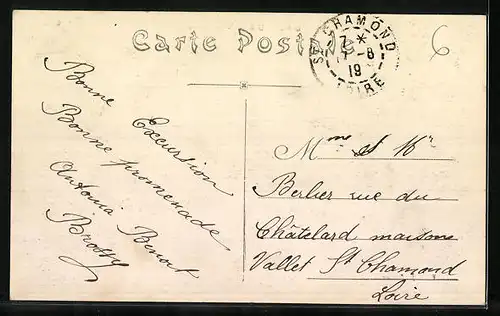 Carte Postale
6
ST CHAMOND
7 *
7-8
19
LOIRE
Bonne Excursion
Bonne promenade
Antonia Benoit
Brossy
Mme & Mr
Berlier rue du
Châtelard maison
Vallet St Chamond
Loire